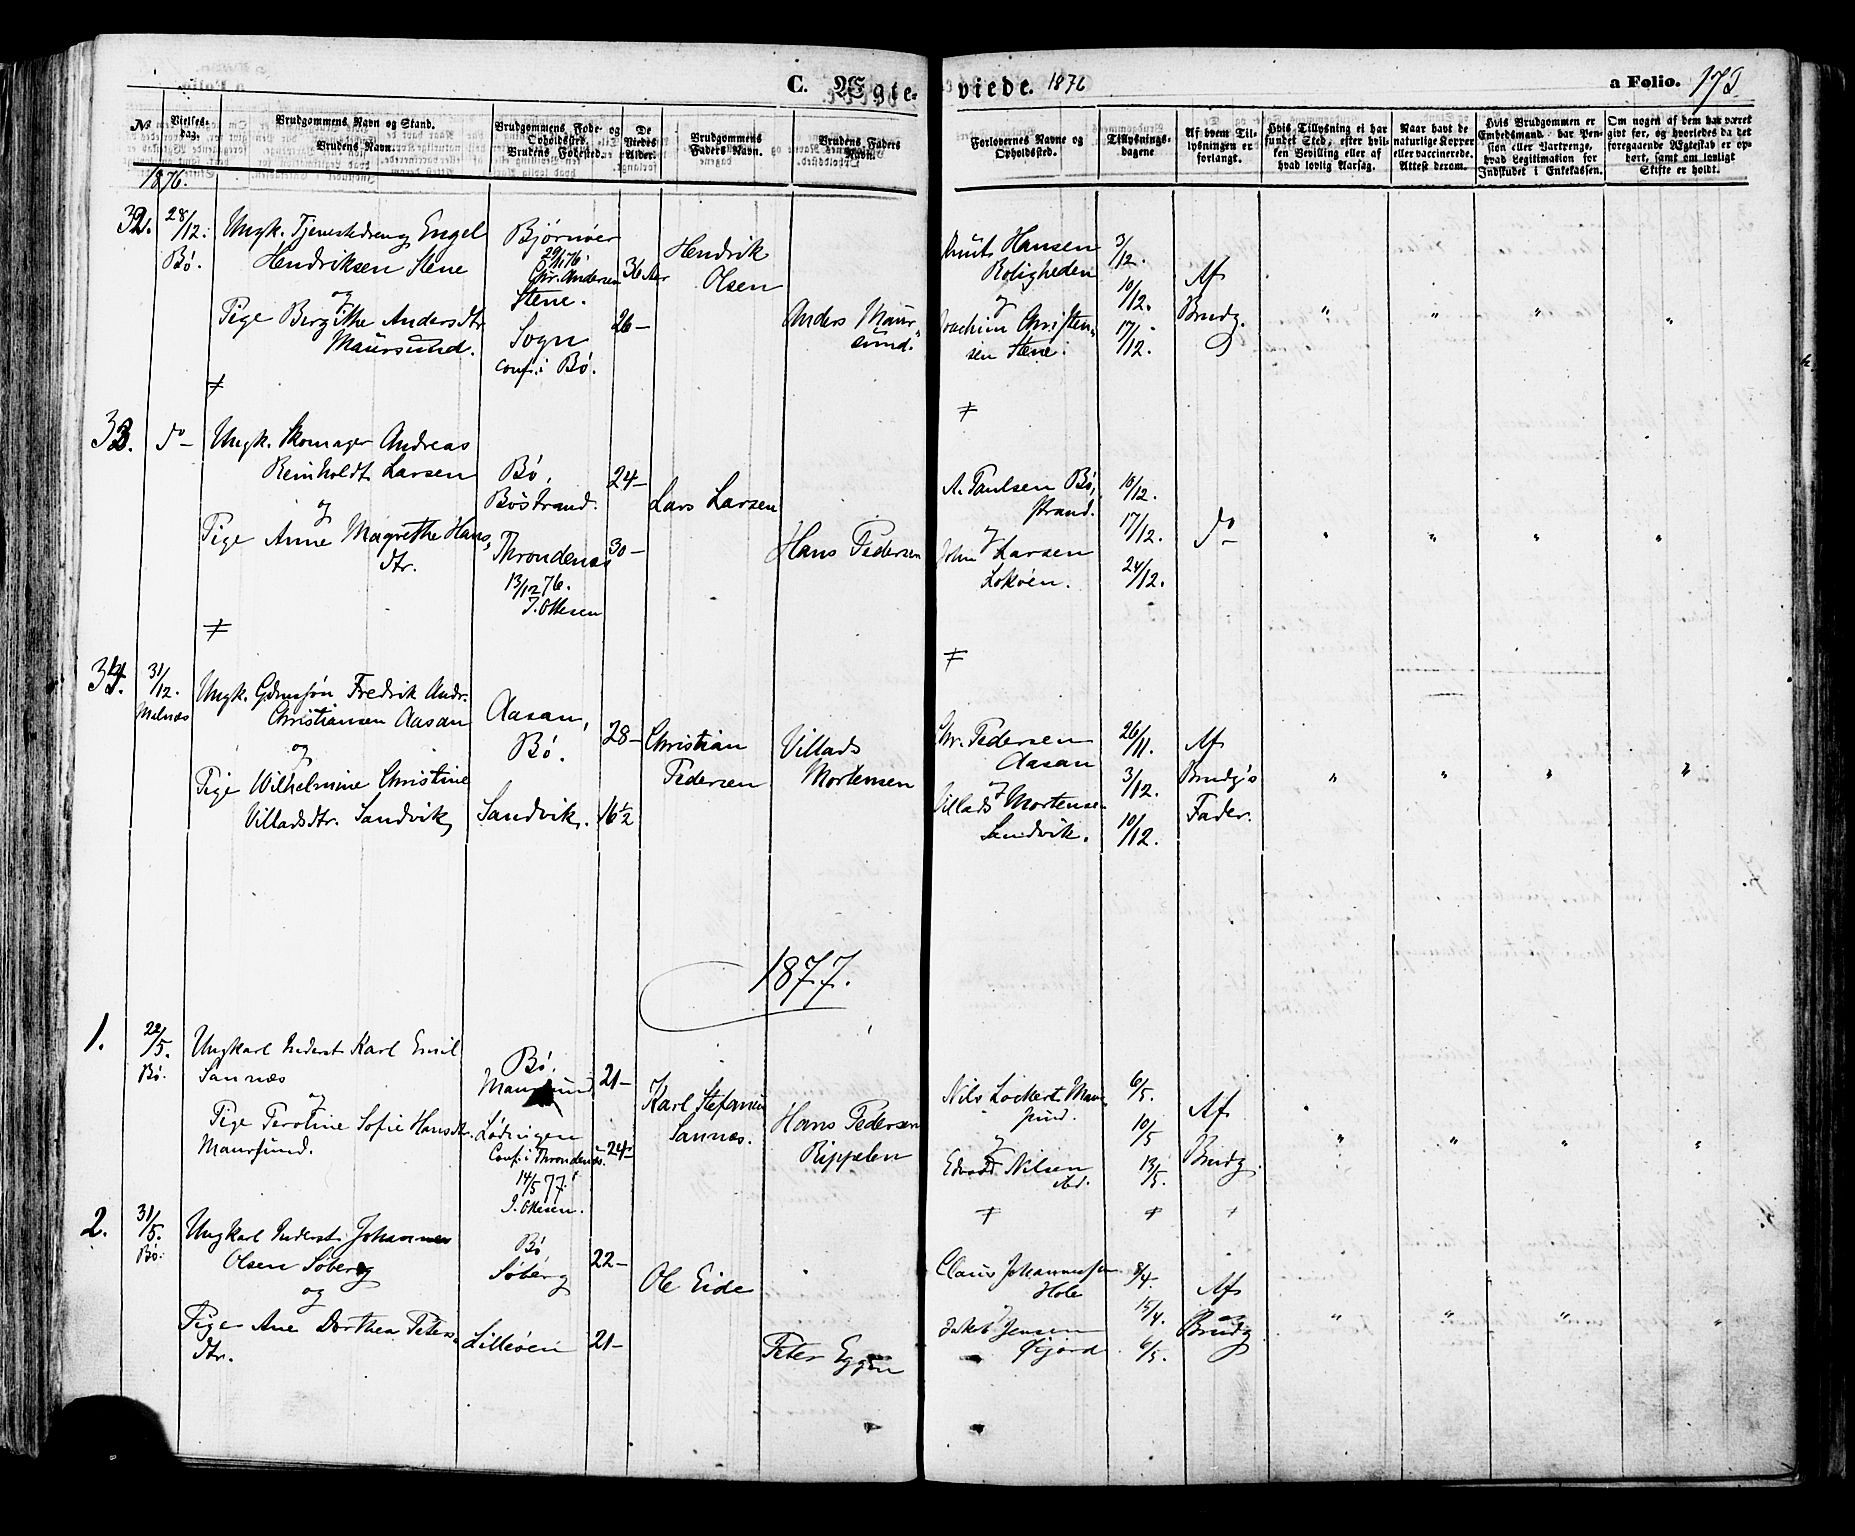 C. Ægte-
viede. 1876
a Folio. 173.
No
Vielses-
dag.
Brudgommens Navn og Stand.
Brudens Navn.
Brudgommens Føde- og
Opholdssted.
Brudens Fødested.
De
Viedes
Alder.
Brudgommens
Faders Navn.
Brudens Faders
Navn.
Forlovernes Navne og
Opholdssted.
Tillysnings-
dagene
Af hvem Til-
lysningen er
forlangt.
Hvis Tillysning ei har
fundet Sted, efter hvil-
ken Bevilling eller af
hvad lovlig Aarsag.
Naar havt de
naturlige Kopper
eller vaccinerede.
Attest derom.
Hvis Brudgommen er
Embedsmand, har Pen-
sion eller Vartpenge,
hvad Legitimation for
Indskudet i Enkekassen.
Om nogen af dem har været
gift før, og hvorledes da det
foregaaende Ægteskab er op-
hørt, samt om lovligt
Skifte er holdt.
1876.
32.
28/12.
Bø.
Ungk. Tjenestedreng Engel
Hendriksen Stene
og
Pige Bergithe Andersdtr
Maursund.
Bjørnøer
29/11 76
Chr. Andersen
Stene.
Sogn
conf. i Bø.
36 Aar
26 –
Hendrik
Olsen
Anders Maur-
sund.
Knut Hansen
Roligheden
og
Joachim Christen-
sen Stene.
3/12.
10/12.
17/12.
Af
Brudg.
" " " "
≠
≠
33.
do –
Ungk. Skomager Andreas
Reinholdt Larsen
og
Pige Anne Magrethe Hans-
dtr.
Bø,
Bøstrand.
Throndenæs
13/12 76.
J. Ottesen
24 –
30 –
Lars Larsen
Hans Pedersen
A. Paulsen Bø-
strand.
og
John Larsen
Lokøen.
10/12.
17/12.
24/12.
do –
" " " "
≠
≠
34.
31/12.
Malnæs
Ungk. Gdmssøn Fredrik Andr.
Christiansen Aasan
og
Pige Wilhelmine Christine
Villadsdtr. Sandvik,
Aasan,
Bø.
Sandvik.
28 –
16 1/2
Christian
Pedersen
Villads
Mortensen
Chr. Pedersen
Aasan
og
Villads Mortensen
Sandvik.
26/11.
3/12.
10/12.
Af
Brudg's
Fader.
" " " "
1877.
1.
22/5.
Bø.
Ungkarl Inderst Karl Emil
Sannæs
og
Pige Peroline Sofie Hansdtr.
Maursund.
Bø.
Maursund
Lødingen
Conf. i Throndenæs.
14/5 77.
J. Ottesen.
21 –
24 –
Karl Stefanus
Sannæs.
Hans Pedersen
Rippelen
Nils Lockert Maur-
sund.
og
Edvard Nilsen
ibd.
6/5.
10/5
13/5.
Af
Brudg.
" " " "
≠ ≠ +
2.
31/5.
Bø.
Ungkarl Inderst Johannes
Olsen Søberg
og
Pige Ane Dorthea Peters-
dtr.
Bø,
Søberg
Lilleøen
22 –
21 –
Ole Eide
Peter Eggen
Claus Johannessen
Hole
og
Jakob Jensen
Øijord
8/4.
15/4.
6/5.
Af
Brudg
" " " "